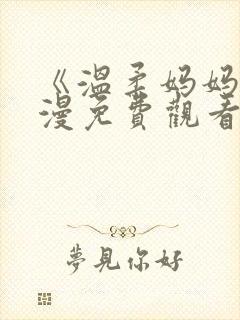 《溫柔妈妈
漫免費觀看
夢見你好